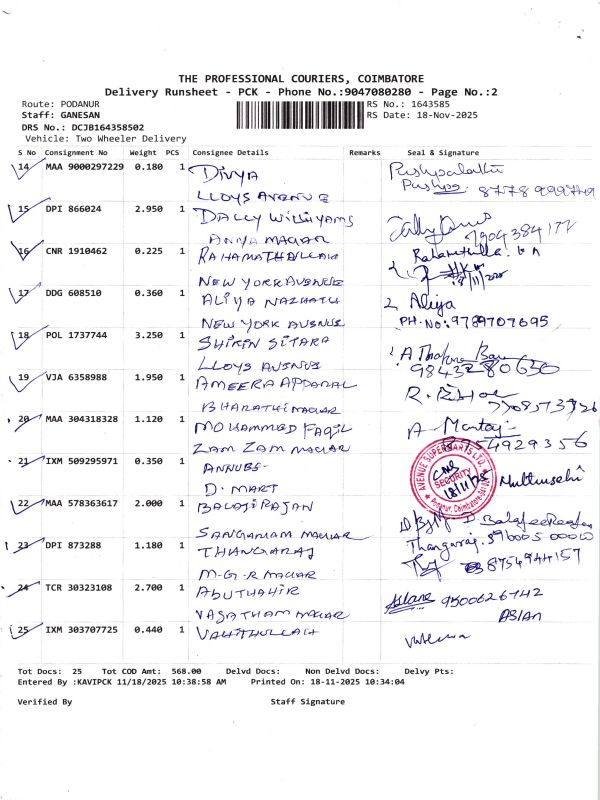 THE PROFESSIONAL COURIERS, COIMBATORE
Delivery Runsheet - PCK - Phone No.:9047080280 - Page No.:2
Route: PODANUR RS No.: 1643585
Staff: GANESAN RS Date: 18-Nov-2025
DRS No.: DCJB164358502
Vehicle: Two Wheeler Delivery
S No Consignment No Weight PCS Consignee Details Remarks Seal & Signature
14 MAA 9000297229 0.180 1 DIVYA
LLOYS AVENUE
15 DPI 866024 2.950 1 DALLY WILLIYAMS
ANNA NAGAR
16 CNR 1910462 0.225 1 RAHAMATHULLAH
NEW YORK AVENUE
17 DDG 608510 0.360 1 ALIYA NAZHATH Aliya
NEW YORK AVENUE PH.NO: 9789707695
18 POL 1737744 3.250 1 SHIRIN SITARA
LLOYS AVENUE 9843280630
19 VJA 6358988 1.950 1 AMEERA APPARAL
BHARATHI NAGAR
20 MAA 304318328 1.120 1 MOHAMMED FAQIL
ZAM ZAM NAGAR
21 IXM 509295971 0.350 1 ANNUBE- AVENUE SUPERMARTS LTD. SECURITY 18/11/25
D. MART
22 MAA 578363617 2.000 1 BALAJI RAJAN
SANGAMAM NAGAR
23 DPI 873288 1.180 1 THANGARAJ Thangaraj.
M-G-R NAGAR 8754944157
24 TCR 30323108 2.700 1 ABUTHAHIR 9500626742
VASATHAM NAGAR ASLAN
25 IXM 303707725 0.440 1 VAHITHULLAH
Tot Docs: 25 Tot COD Amt: 568.00 Delvd Docs: Non Delvd Docs: Delvy Pts:
Entered By :KAVIPCK 11/18/2025 10:38:58 AM Printed On: 18-11-2025 10:34:04
Verified By Staff Signature